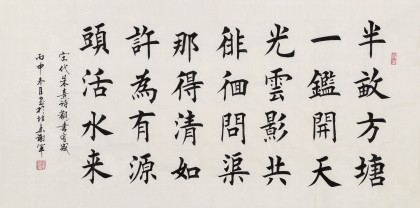 半畝方塘
一鑑開天
光雲影共
徘徊問渠
那得清如
許為有源
頭活水来
宋代朱熹詩觀書有感
丙申春月書於北京謝軍